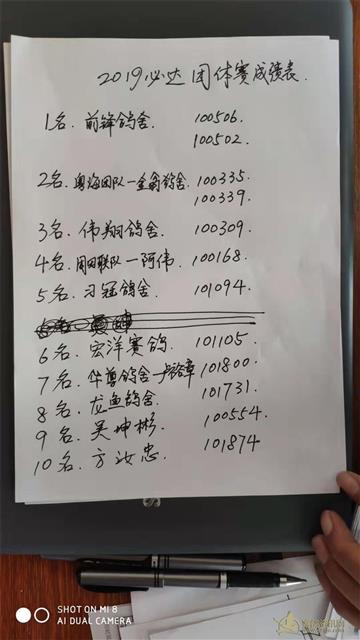 2019必达团体赛成绩表.
1名. 前锋鸽舍 100506.
100502.
2名. 粤海团队一金翕鸽舍. 100335.
100339.
3名. 伟翔鸽舍. 100309.
4名. 周田联队一阿伟. 100168.
5名. 刁冠鸽舍. 101094.
6名. 宏洋赛鸽. 101105.
7名. 华尊鸽舍-卢裕章 101800.
8名. 龙鱼鸽舍. 101731.
9名. 吴坤彬. 100554.
10名. 方汝忠. 101874
SHOT ON MI 8
AI DUAL CAMERA